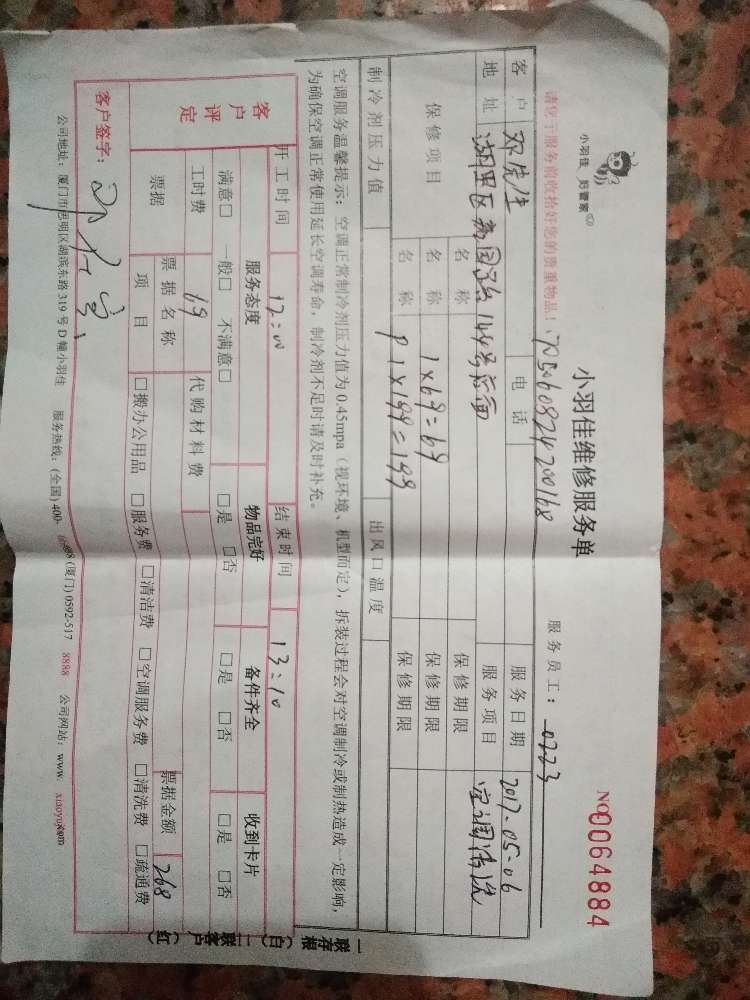 小羽佳 好管家
小羽佳维修服务单
NO 0064884
请您于服务前收拾好您的贵重物品!
170506082420068
服务员工: 0223
客户 邓先生 电话 服务日期 2017-05-06
地址 湖里区 144号后面 服务项目 空调清洗
保修项目 名称 保修期限
名称 1×69=69 保修期限
名称 P 1×199=199 保修期限
制冷剂压力值 出风口温度
空调服务温馨提示:空调正常制冷剂压力值为0.45mpa(视环境、机型而定),拆装过程会对空调制冷或制热造成一定影响,
为确保空调正常使用延长空调寿命,制冷剂不足时请及时补充。
开工时间 12:00 结束时间 13:10
客户评定 服务态度 物品完好 备件齐全 收到卡片
满意□ 一般□ 不满意□ □是 □否 □是 □否 □是 □否
工时费 代购材料费
票据 票据名称 票据金额 268
项目 □搬办公用品 □服务费 □清洁费 □空调服务费 □清洗费 □疏通费
客户签字:
公司地址:厦门市思明区湖滨东路319号D幢小羽佳 服务热线:(全国)400- (厦门)0592-517 8888 公司网站:www.
一联存根(白) 二联客户(红)